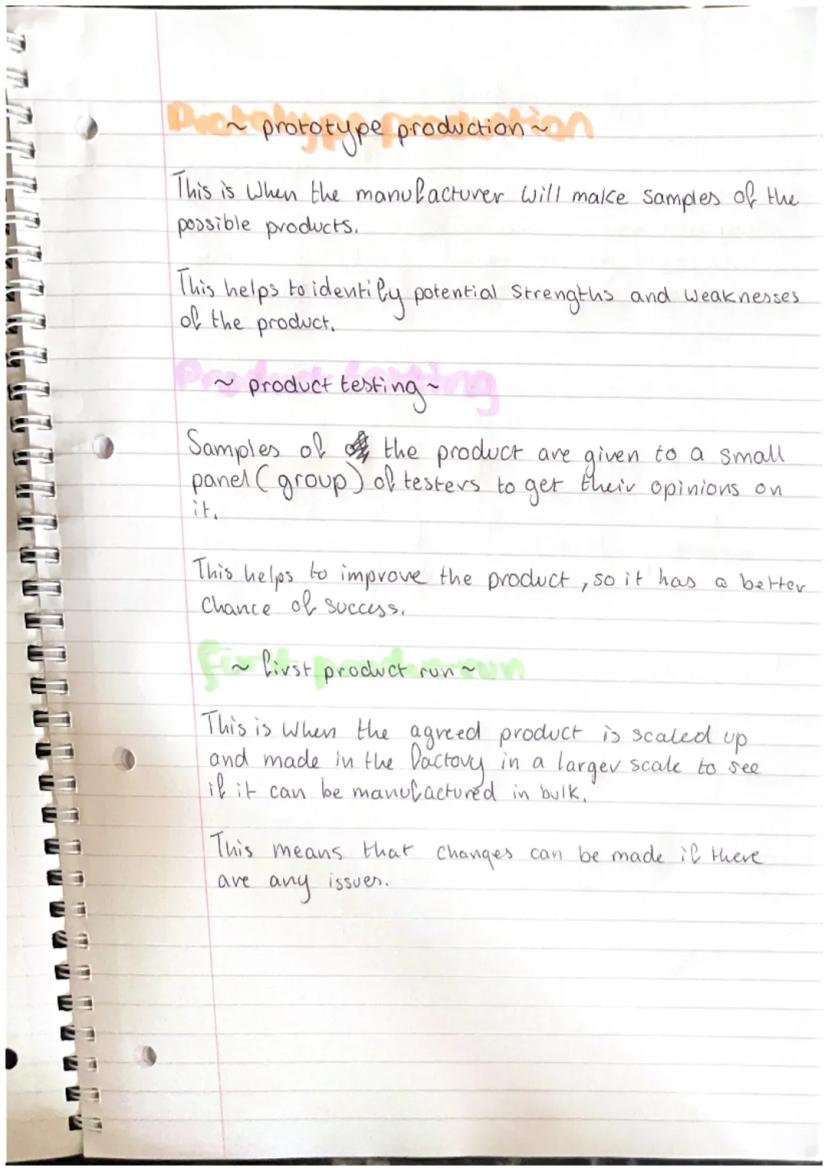 Prototype production
~ prototype production ~
This is When the manufacturer will make samples of the
possible products.
This helps to identify potential Strengths and weaknesses
of the product.
Product testing
~ product testing ~
Samples of the product are given to a small
panel (group) of testers to get their opinions on
it.
This helps to improve the product, so it has a better
Chance of success.
~ first product run ~
This is when the agreed product is scaled up
and made in the factory in a larger scale to see
if it can be manufactured in bulk.
This means that changes can be made if there
are any issues.